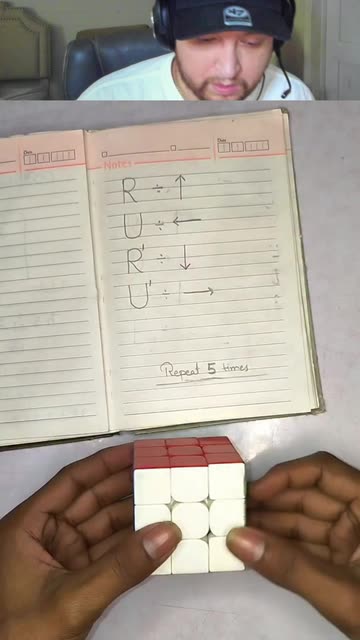 '47
Date
Date
Notes
R ÷ ↑
U ÷ ←
R' ÷ ↓
U' ÷ →
Repeat 5 times